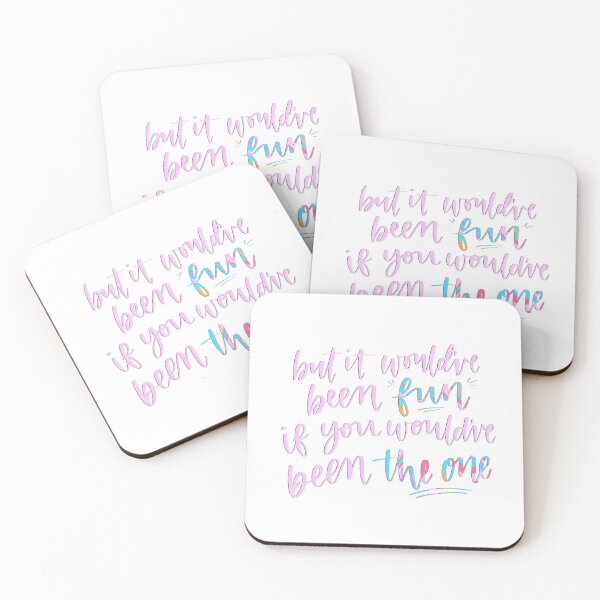 but it would've
been "fun"
one
but it would've
been "fun"
if you would've
been the one
but it would've
been "fun"
if you would've
been the
but it would've
been "fun"
if you would've
been the one